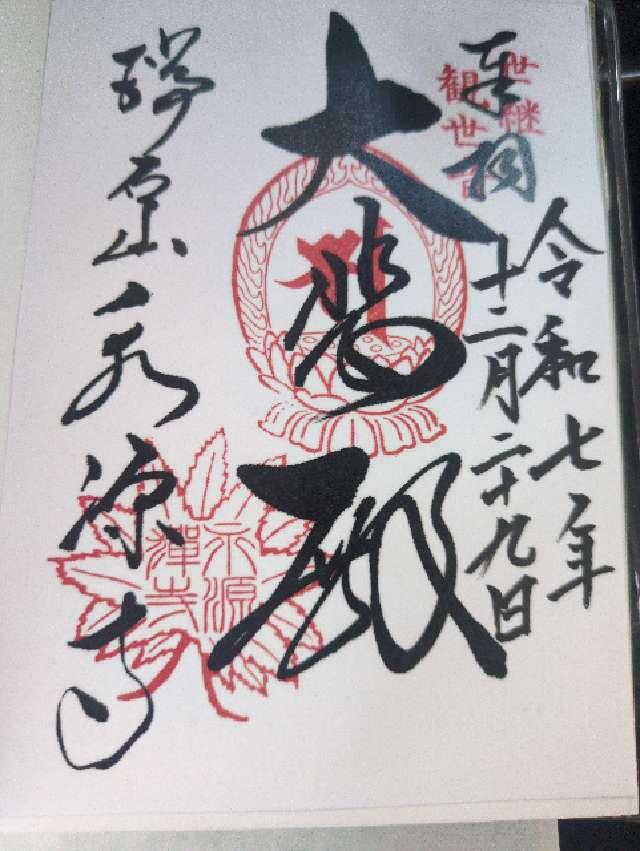 奉拝
世継
観世音
令和七年
十二月二十九日
大悲殿
瑞石山永源寺
永源
禅寺